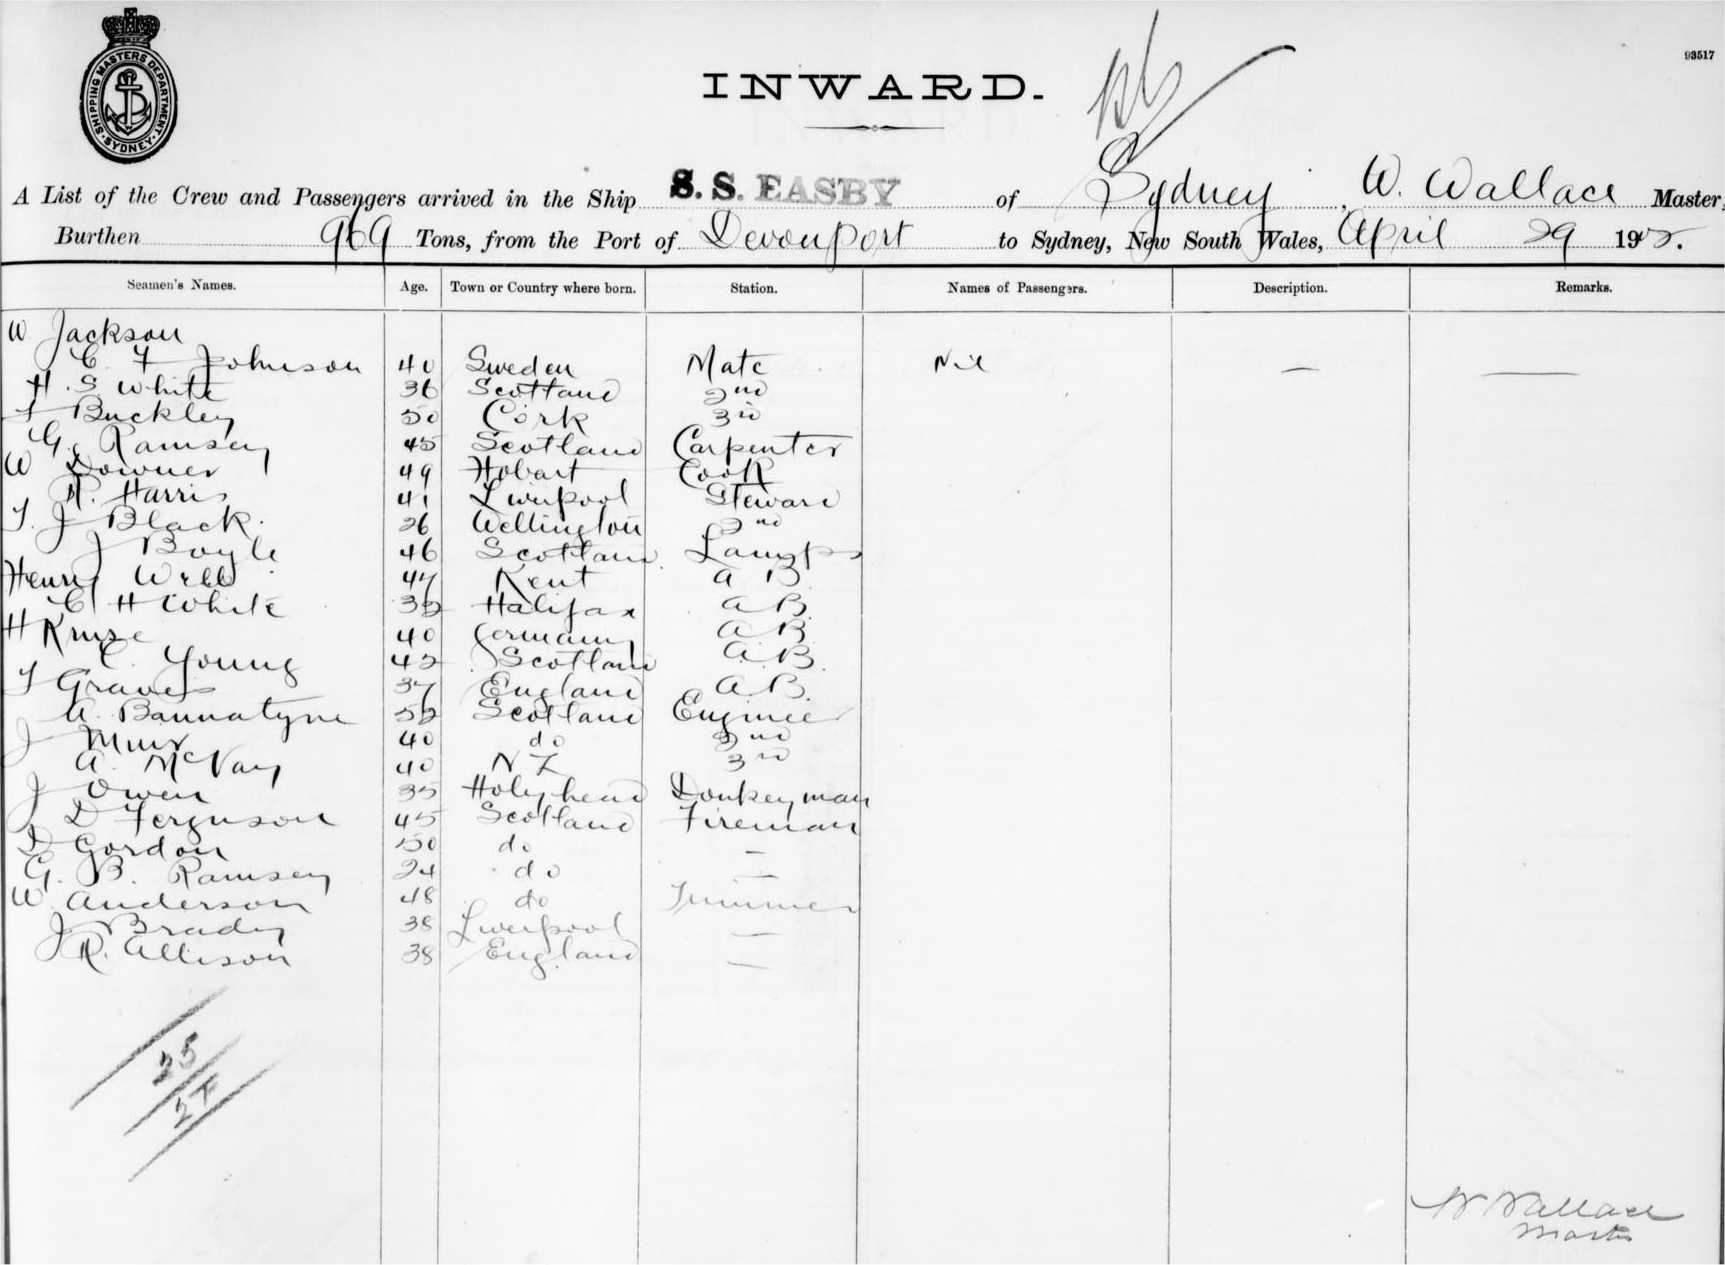 SHIPPING MASTERS DEPARTMENT
SYDNEY
93517
INWARD.
A List of the Crew and Passengers arrived in the Ship S. S. EASBY of Sydney, W. Wallace Master,
Burthen 969 Tons, from the Port of Devonport to Sydney, New South Wales, April 29 19
Seamen's Names. Age. Town or Country where born. Station. Names of Passengers. Description. Remarks.
W. Jackson
C. F Johnson 40 Sweden Mate Nil — —
H. S White 36 Scotland 2nd
Buckley 50 Cork 3rd
G. Ramsey 45 Scotland Carpenter
W Downer 49 Hobart Cook
R. Harris 41 Liverpool Steward
T. J Black. 26 Wellington 2nd
J Boyle 46 Scotland Lamps
Henry Webb 47 Kent A B
C H White Halifax A B
H Kruse 40 Germany A B
C. Young 42 Scotland A. B.
T Graves 37 England A B.
A. Bannatyne 52 Scotland Engineer
J Muir 40 do 2nd
A. McVay 40 N Z 3rd
J Owen 35 Holyhead Donkeyman
J D Ferguson 45 Scotland Fireman
D Gordon 50 do —
G. B. Ramsey 24 do —
W. Anderson 48 do Trimmer
J Brady 38 Liverpool —
R. Allison 38 England —
25
27
W Wallace
Master